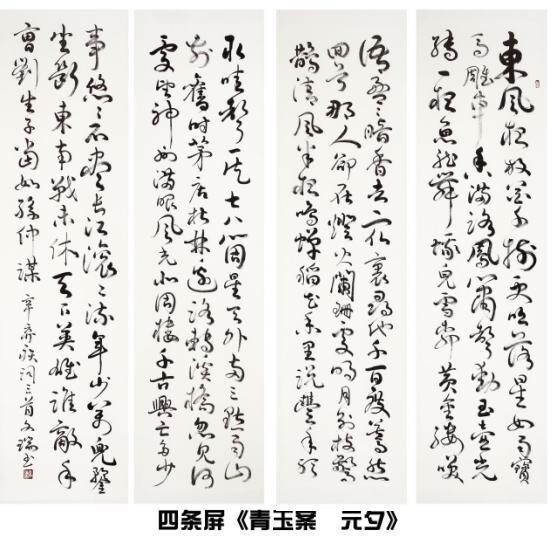 東風夜放花千樹更吹落星如雨寶
馬雕車香滿路鳳簫聲動玉壺光
轉一夜魚龍舞蛾兒雪柳黃金縷笑
語盈盈暗香去眾裏尋他千百度驀然
回首那人卻在燈火闌珊處明月別枝驚
鵲清風半夜鳴蟬稻花香里說豐年聽
取蛙聲一片七八個星天外兩三點雨山
前舊時茅店社林邊路轉溪橋忽見何
處望神州滿眼風光北固樓千古興亡多少
事悠悠不盡長江滾滾流年少萬兜鍪
坐斷東南戰未休天下英雄誰敵手
曹劉生子當如孫仲謀 辛棄疾詞三首文瑞书
四条屏《青玉案 元夕》